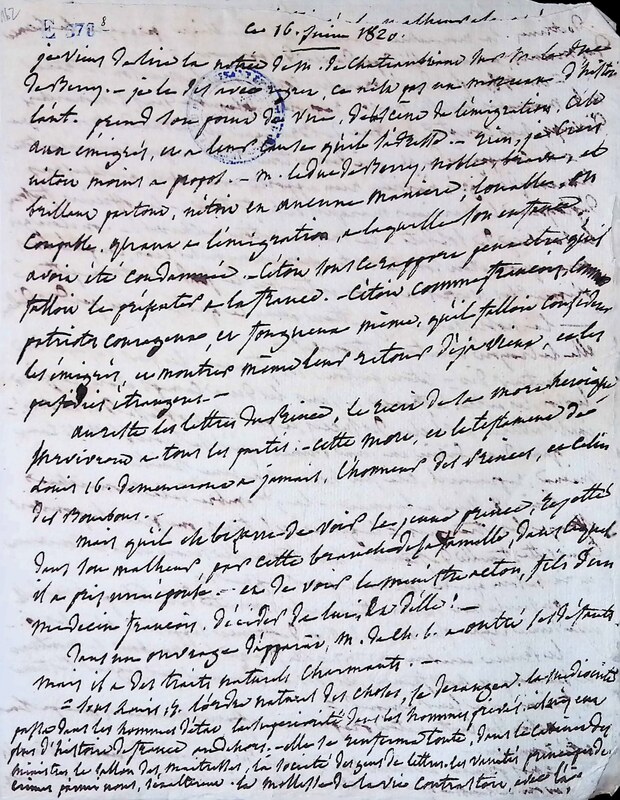 E 378 8
ce 16. juin 1820.
je viens de lire la notice de M. de chateaubriand sur M. le duc
de Berry. - je le dis avec regret, ce n'est pas un morceau d'histoire
tant. prend son point de vue, d'obscène de l'émigration, cela
aux émigrés, et a leur cause qu'il s'adresse. - rien, je crois
n'étoit moins a propos. - M. le duc de Berry, noble, brave, et
brillant partout, n'étoit en aucune manière, louable, ou
coupable, quant a l'émigration, a laquelle son enfance
avoit été condamnée. - c'étoit sous ce rapport peut être qu'il
falloit le présenter a la france. - c'étoit comme françois, comme
patriote courageux, et fougueux même, qu'il falloit considérer
les émigrés, et montrer même leur retour déjà vieux, et les
perfidies étrangères. -
au reste les lettres du Prince, le récit de la mort héroïque
survivront a tous les partis. - cette mort, et le testament de
Louis 16. demeureront a jamais, l'honneur des Princes, et celui
des Bourbons. -
mais qu'il est bizarre de voir le jeune prince, rejetté
dans son malheur par cette branche de sa famille, dans laquelle
il a pris une épouse - et de voir le ministre acton, fils d'un
médecin françois, décider de lui, et d'elle! -
dans un ouvrage d'apparat, M. de Ch. b. a outré ses défauts.
mais il a des traits naturels charmants. -
= sous Louis 15 l'ordre naturel des choses, se dérangea la médiocrité
passa dans les hommes d'état, la supériorité dans les hommes privés: alors, on
plus d'histoire de france au dehors. - elle se renferma toute, dans le cabinet des
ministres, le sallon des maitresses, la société des gens de lettres. les variétés
crimes parmi nous, la mollesse de la vie contrastoit, avec la